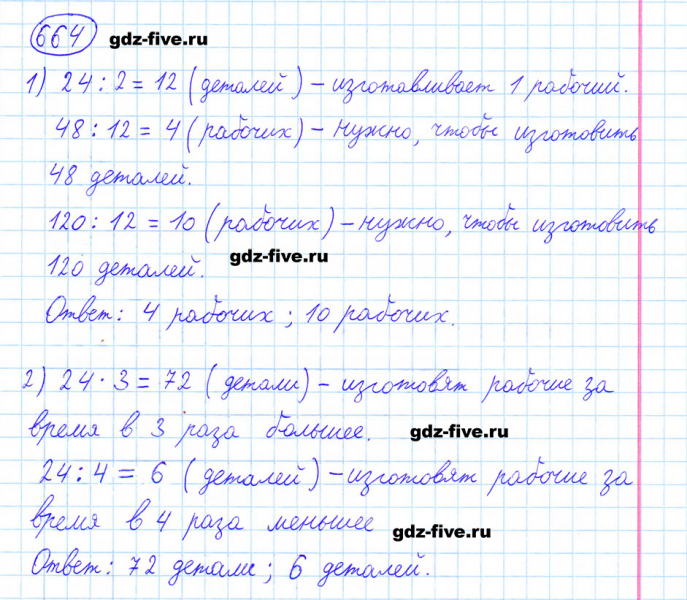 664 gdz-five.ru
1) 24 : 2 = 12 (деталей) – изготавливает 1 рабочий.
48 : 12 = 4 (рабочих) – нужно, чтобы изготовить
48 деталей.
120 : 12 = 10 (рабочих) – нужно, чтобы изготовить
gdz-five.ru
120 деталей.
Ответ: 4 рабочих ; 10 рабочих.
2) 24 · 3 = 72 (детали) – изготовят рабочие за
время в 3 раза большее. gdz-five.ru
24 : 4 = 6 (деталей) – изготовят рабочие за
время в 4 раза меньшее gdz-five.ru
Ответ: 72 детали ; 6 деталей.